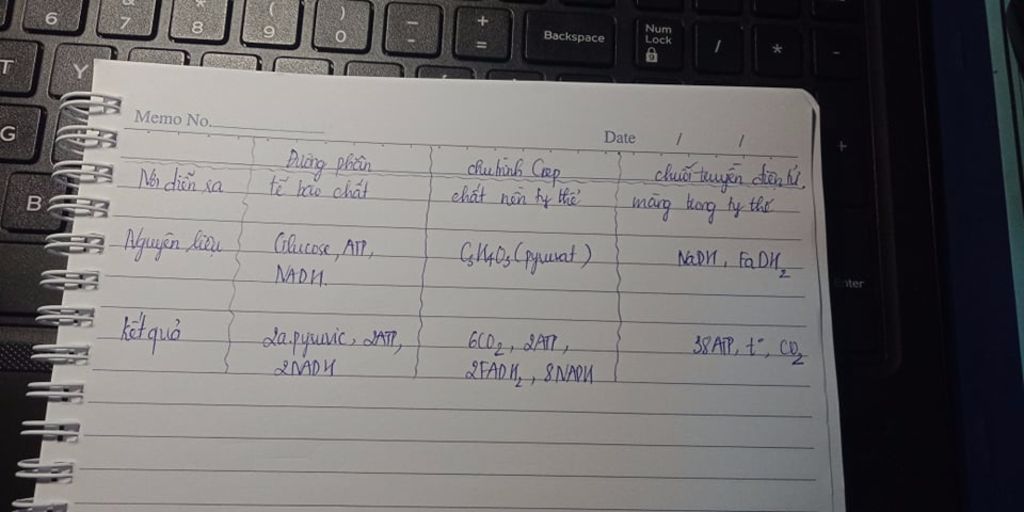 6 7 8 ( 9 ) 0 - + = Backspace Num Lock / * -
T Y
G
B
+
enter
Memo No.
Date / /
Đường phân chu trình Crep chuỗi truyền điện tử
Nơi diễn ra tế bào chất chất nền ty thể màng trong ty thể
Nguyên liệu Glucose, ATP, C3H4O3 (pyruvat) NaDH, FaDH2
NADH.
Kết quả 2a.pyruvic, 2ATP, 6CO2, 2ATP, 38ATP, t°, CO2
2NADH 2FADH2, 8NADH